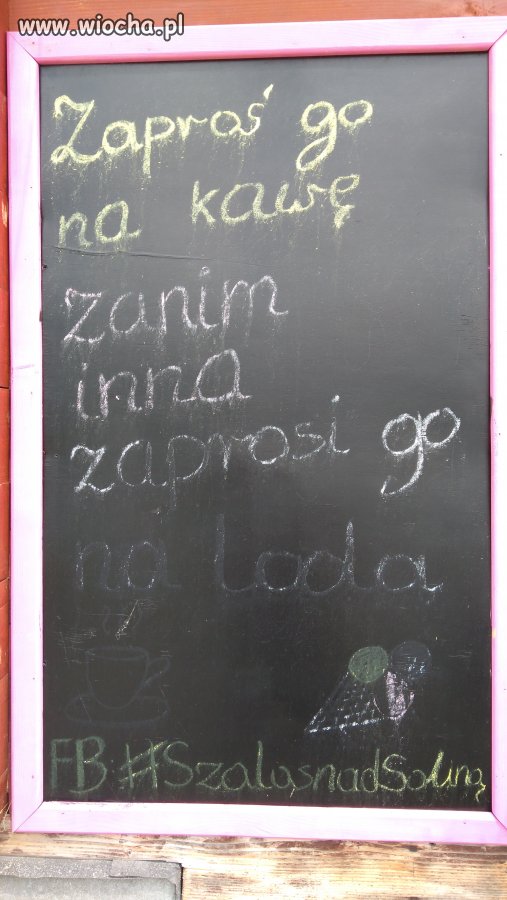 www.wiocha.pl
Zaproś go
na kawę
zanim
inna
zaprosi go
na loda
FB:#SzałasnadSoliną